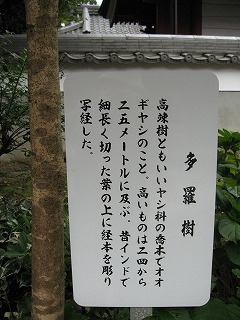 多羅樹
高竦樹ともいいヤシ科の喬木でオオ
ギヤシのこと。高いものは二四から
二五メートルに及ぶ、昔インドで
細長く切った葉の上に経本を彫り
写経した。